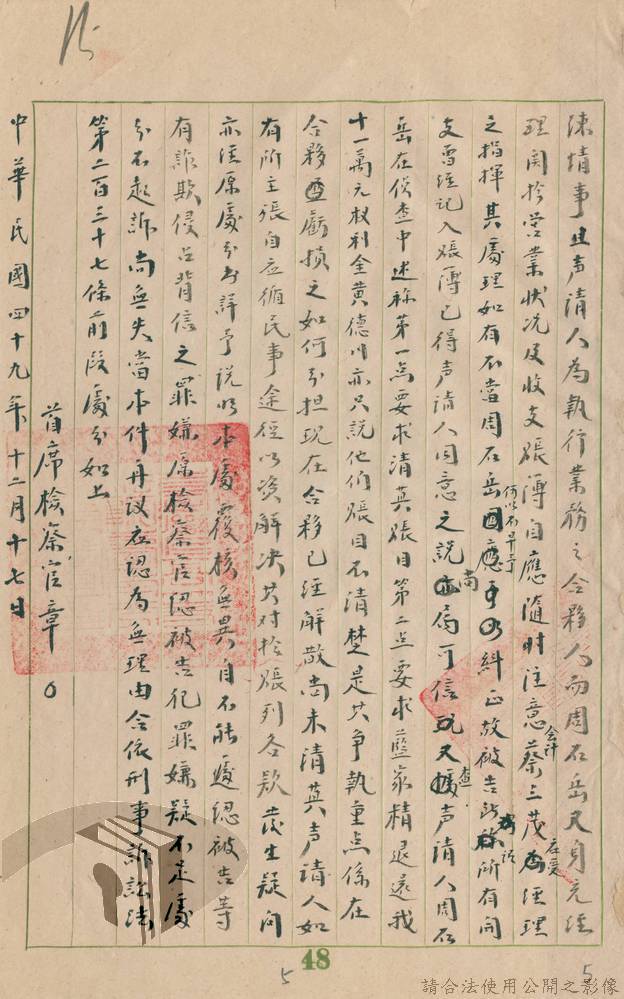 陳情事且声請人為執行業務之合夥人而周石岳又身充经
理関於营業狀况及收支賬簿自應随時注意蔡三茂會计為经理應受
之指揮其處理如有不當周石岳何以不早予糾正故被告所称所有開
支曾经记入賬簿已得声請人同意之説尚属可信又查声請人周石
岳在侦查中述称第一点要求清算賬目第二点要求藍家精退还我
十一萬元权利金黄德川亦只說他们賬目不清楚是其争執重点係在
合夥盈虧损之如何分担现在合夥已经解散尚未清算声請人如
有所主張自应循民事途径以资解决其对於賬列各款發生疑问
亦经原處分书詳予説明本處覆核無異自不能遽認被告等
有詐欺侵占背信之罪嫌原檢察官認被告犯罪嫌疑不足處
分不起訴尚無失當本件再议应認為無理由合依刑事訴訟法
第二百三十七條前段處分如上
首席檢察官章○
中華民國四十九年十二月十七日
48
5
5
請合法使用公開之影像